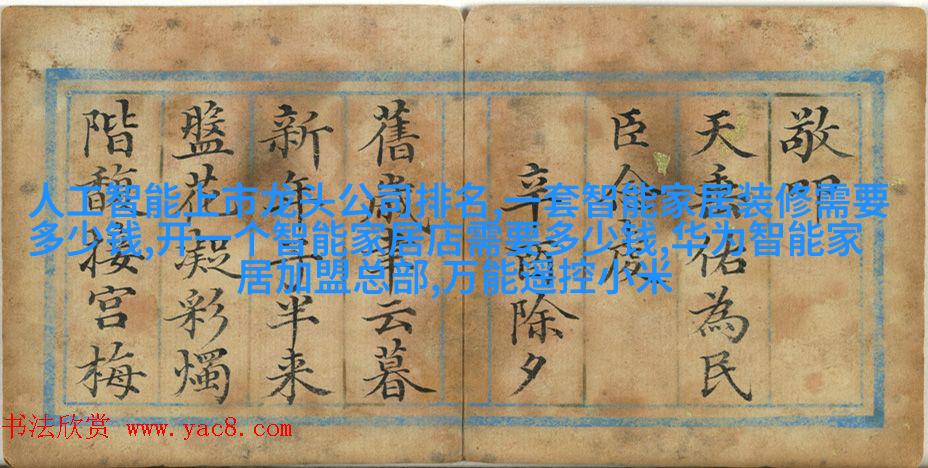 敬叩
天垂佑為民
臣
辛酉除夕
舊歲云暮
新年半来
盤花凝彩燭
階馥接宫梅
人工智能上市龙头公司排名,一套智能家居装修需要
多少钱,开一个智能家居店需要多少钱,华为智能家
居加盟总部,万能遥控小米
书法欣赏 www.yac8.com